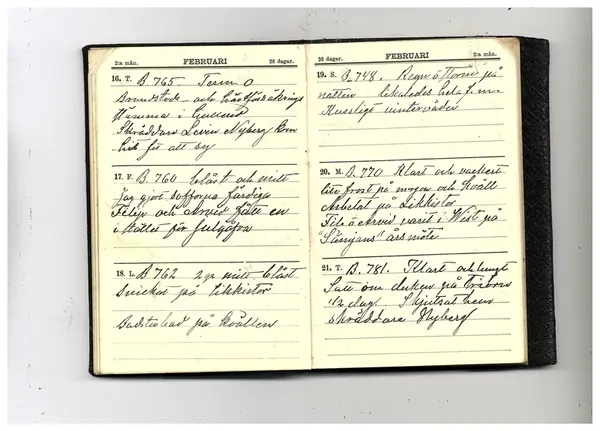 2:a mån. FEBRUARI 28 dagar.
16. T. B. 765 Term 0
Brandstods- och
Stämma i
Skräddare Levin Nyberg kom
hit för att sy
17. F. B. 760 blåst och milt
Jag gjort sofforna färdiga
Filip och Arvid
i stället för julgåfva
18. L. B. 762 2 gr milt blåst
Snickat på likkistor
Badstubad på kvällen
28 dagar. FEBRUARI 2:a mån.
19. S. B. 748. Regn o Storm på
natten likaledes hela f. m.
Ruskligt vinterväder
20. M. B. 770 Klart och vackert
lite frost på morgon och kväll
Arbetat på Likkistor
Fil. o Arvid varit i West på
"Sunnans" årsmöte
21. T. B. 781. Klart och lungt
Satt om duken på
1/2 dag. Skjutsat hem
skräddare Nyberg